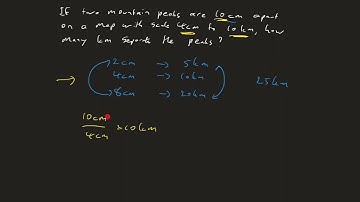 If two mountain peaks are 10cm apart
on a map with scale 4cm to 10km, how
many km separate the peaks?
2cm → 5km
4cm → 10km 25km
8cm → 20km
10cm
4cm × 10km